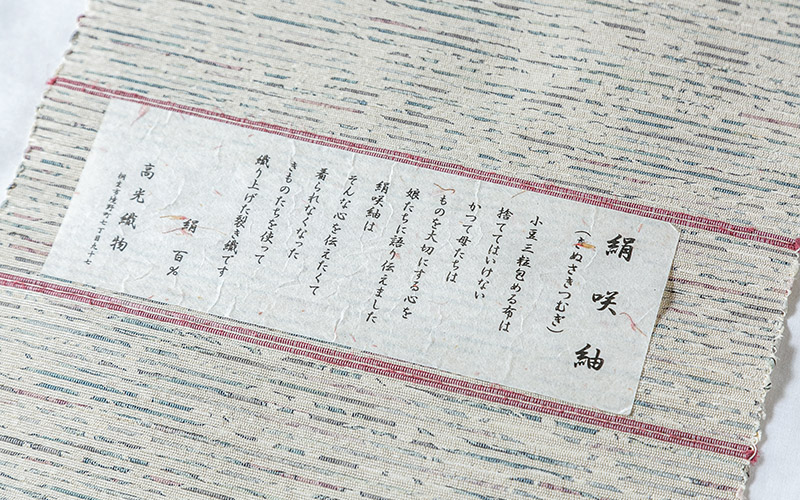 絹咲紬
(きぬさきつむぎ)
小豆三粒包める布は
捨ててはいけない
かつて母たちは
ものを大切にする心を
娘たちに語り伝えました
絹咲紬は
そんな心を伝えたくて
着られなくなった
きものたちを使って
織り上げた裂き織です
絹 百%
高光織物
桐生市境野町七丁目九十七